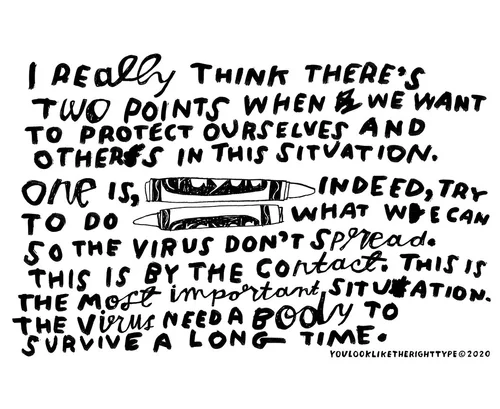 I REally THINK THERE'S
TWO POINTS WHEN WE WANT
TO PROTECT OURSELVES AND
OTHERS IN THIS SITUATION.
One IS, INDEED, TRY
TO DO WHAT WE CAN
SO THE VIRUS DON'T Spread.
THIS IS BY THE Contact. THIS IS
THE Most important SITUATION.
THE Virus NEED A BOdy TO
SURVIVE A LONG TIME.
YOULOOKLIKETHERIGHTTYPE©2020